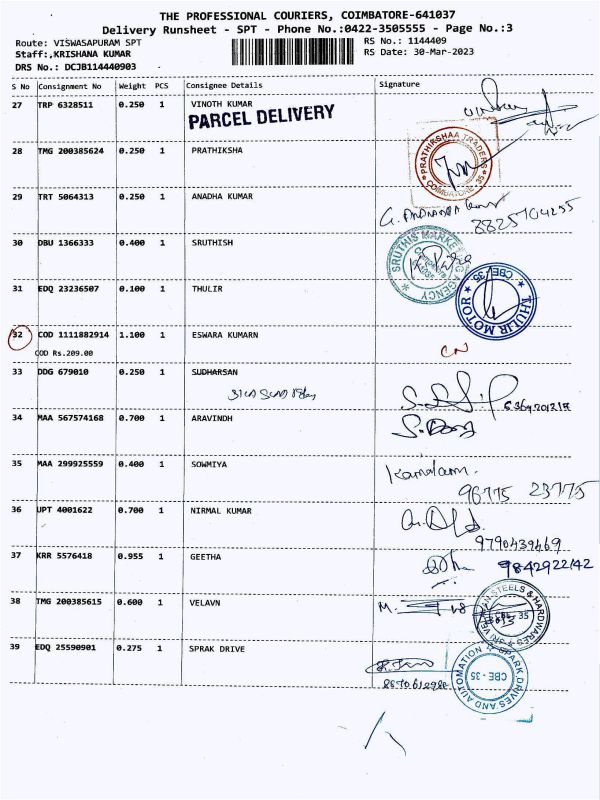 THE PROFESSIONAL COURIERS, COIMBATORE-641037
Delivery Runsheet - SPT - Phone No.:0422-3505555 - Page No.:3
Route: VISWASAPURAM SPT
RS No.: 1144409
Staff:,KRISHANA KUMAR
RS Date: 30-Mar-2023
DRS No.: DCJB114440903
S No Consignment No Weight PCS Consignee Details Signature
27 TRP 6328511 0.250 1 VINOTH KUMAR
PARCEL DELIVERY
28 TMG 200385624 0.250 1 PRATHIKSHA
PRATHIKSHAA TRADERS COIMBATORE - 35
29 TRT 5064313 0.250 1 ANADHA KUMAR
8825104255
30 DBU 1366333 0.400 1 SRUTHISH
SRUTHIS MARKETING AGENCY
31 EDQ 23236507 0.100 1 THULIR
THULIR MOTOR CBE-35
32 COD 1111882914 1.100 1 ESWARA KUMARN
CN
COD Rs.209.00
33 DDG 679010 0.250 1 SUDHARSAN
34 MAA 567574168 0.700 1 ARAVINDH
35 MAA 299925559 0.400 1 SOWMIYA
96775 23775
36 UPT 4001622 0.700 1 NIRMAL KUMAR
9790439469
37 KRR 5576418 0.955 1 GEETHA
9842922142
38 TMG 200385615 0.600 1 VELAVN
SRI VELAVAN STEELS & HARDWARES
39 EDQ 25590901 0.275 1 SPRAK DRIVE
SPARK DRIVES AND AUTOMATION CBE - 35
8870612980